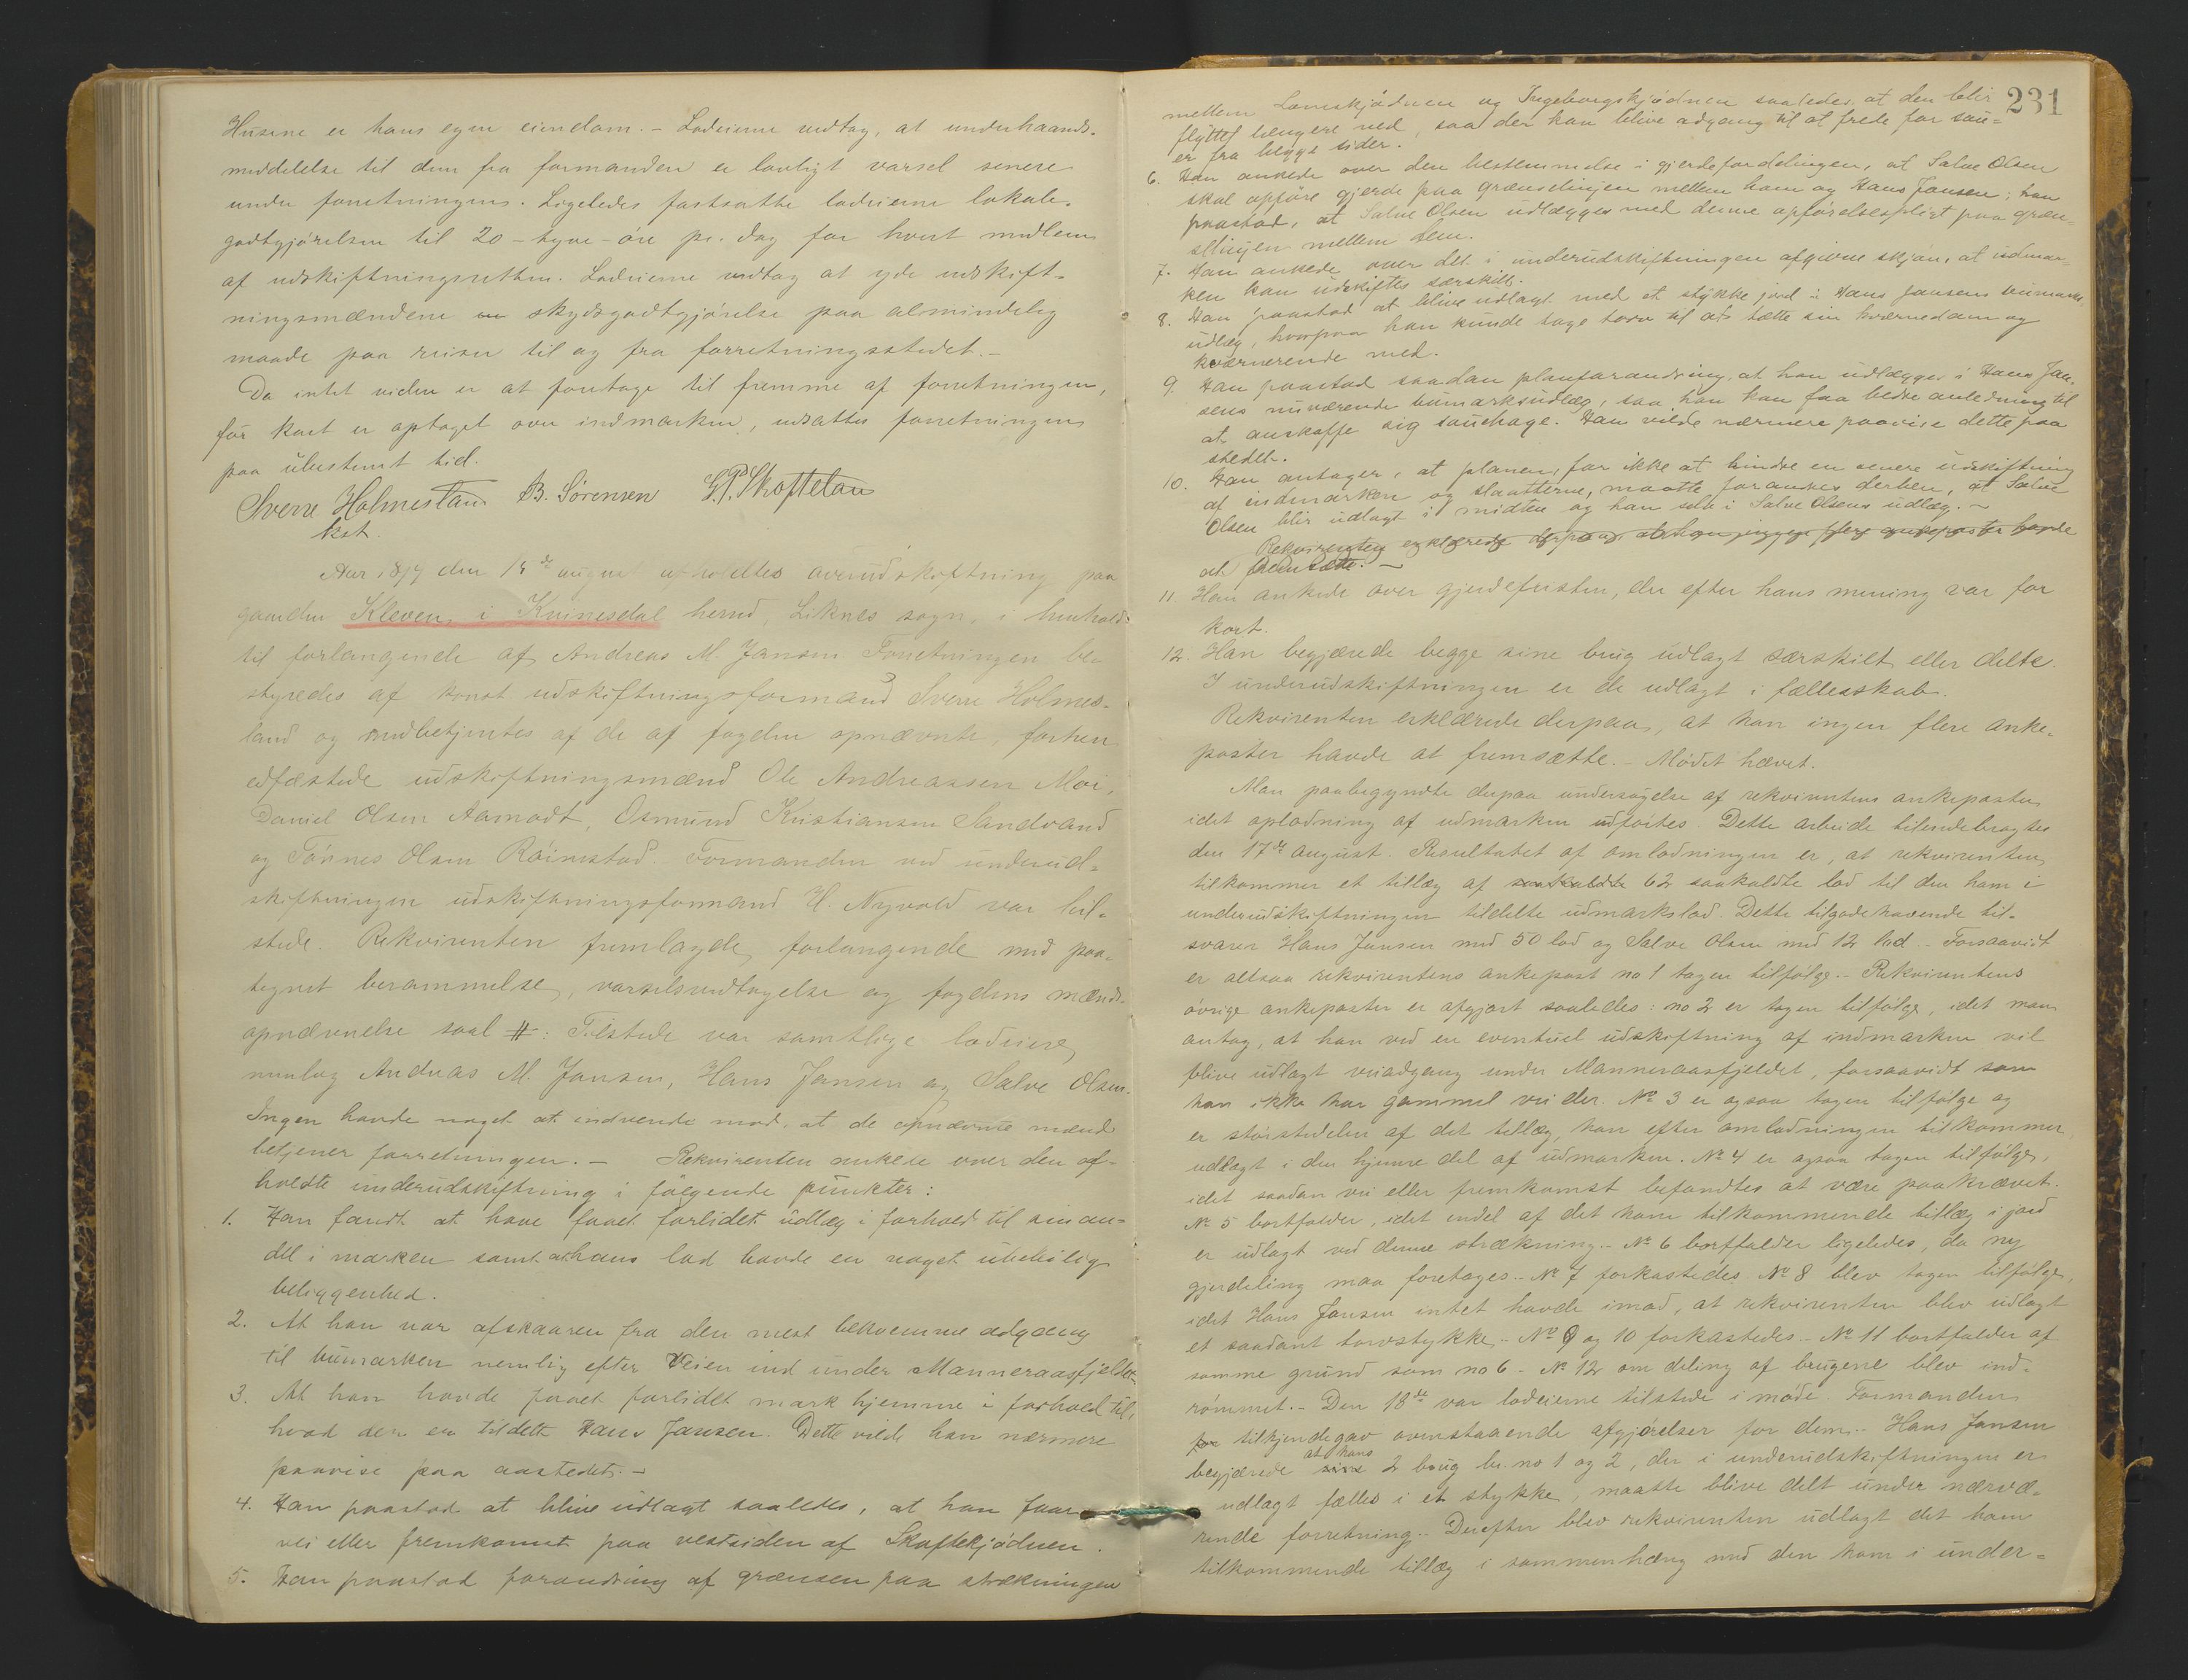 Husene er hans egen eiendom. – Lodeierne vedtog, at underhaands-
meddelelse til dem fra formanden er lovligt varsel senere
under forretningen. Ligeledes fastsatte lodeierne lokale-
godtgjørelsen til 20 – tyve – øre pr. dag for hvert medlem
af udskiftningsretten. Lodeierne vedtog at yde udskift-
ningsmændene en skydsgodtgjørelse paa almindelig
maade paa reiser til og fra forretningsstedet. –
Da intet videre er at foretage til fremme af forretningen,
før kart er optaget over indmarken, udsattes forretningen
paa ubestemt tid.
Sverre Holmesland B. Sørensen G.P. Skoftelan
kst.
Aar 1899 den 14de august afholdtes overudskiftning paa
gaarden Kleven i Kvinesdal herred, Liknes sogn, i henhold
til forlangende af Andreas M. Jansen. Forretningen be-
styredes af konst udskiftningsformand Sverre Holmes-
land og medbetjentes af de af fogden opnævnte, forhen
edfæstede udskiftningsmænd Ole Andreassen Moi,
Daniel Olsen Aamodt, Osmund Kristiansen Sandvand
og Tønnes Olsen Røimstad. Formanden ved underud-
skiftningen udskiftningsformand H. Nyvold var til-
stede. Rekvirenten fremlagde forlangende med paa-
tegnet berammelse, varselsvedtagelse og fogdens mænds-
opnævnelse saal #: Tilstede var samtlige lodeiere,
nemlig Andreas M. Jansen, Hans Jansen og Salve Olsen.
Ingen havde noget at indvende mod, at de opnævnte mænd
betjener forretningen. – Rekvirenten ankede over den af-
holdte underudskiftning i følgende punkter:
1. Han fandt at have faaet forlidet udlæg i forhold til sin an-
del i marken samt at hans lod havde en noget ubeleilig
beliggenhed.
2. At han var afskaaren fra den mest bekvemme adgang
til bumarken nemlig efter Veien ind under Manneraasfjeldet.
3. At han havde faaet forlidet mark hjemme i forhold til,
hvad der er tildelt Hans Jansen. Dette vilde han nærmere
paavise paa aastedet. –
4. Han paastod at blive udlagt saaledes, at han faar
vei eller fremkomst paa vestsiden af Skaftekjødnen.
5. Han paastod forandring af grænsen paa strækningen
231
mellem Lomskjødnen og Ingeborgskjødnen saaledes at den blir
flyttet længere ned, saa der kan blive adgang til at frede for sau-
er fra begge sider.
6. Han ankede over den bestemmelse i gjerdefordelingen, at Salve Olsen
skal opføre gjerde paa grænselinjen mellem ham og Hans Jansen; han
paastod, at Salve Olsen udlægges med denne opførelsespligt paa græn-
selinjen mellem dem.
7. Han ankede over det i underudskiftningen afgivne skjøn, at udmar-
ken kan udskiftes særskilt.
8. Han paastod at blive udlagt med et stykke jord i Hans Jansens bumarks-
udlæg, hvorpaa han kunde tage torv til at tætte sin kværnedam og
kværnerende med.
9. Han paastod saadan planforandring, at han udlægges i Hans Jan-
sens nuværende bumarksudlæg, saa han kan faa bedre anledning til
at anskaffe sig sauehage. Han vilde nærmere paavise dette paa
stedet.
10. Han antager, at planen, for ikke at hindre en senere udskiftning
af indmarken og slaatterne, maatte forandres derhen, at Salve
Olsen blir udlagt i midten og han selv i Salve Olsens udlæg. –
Rekvirenten erklærede derpaa, at han ingen flere ankeposter havde
at fremsætte. –
11. Han ankede over gjerdefristen, der efter hans mening var for
kort.
12. Han begjærede begge sine brug udlagt særskilt eller delte.
I underudskiftningen er de udlagt i fællesskab.
Rekvirenten erklærede derpaa, at han ingen flere anke-
poster havde at fremsætte. – Mødet hævet.
Man paabegyndte derpaa undersøgelse af rekvirentens ankeposter,
idet oplodning af udmarken udførtes. Dette arbeide tilendebragtes
den 17de august. Resultatet af omlodningen er, at rekvirenten
tilkommer et tillæg af saakaldte 62 saakaldte lod til den ham i
underudskiftningen tildelte udmarkslod. Dette tilgodehavende til-
svarer Hans Jansen med 50 lod og Salve Olsen med 12 lod. – Forsaavidt
er altsaa rekvirentens ankepost no 1 tagen tilfølge. – Rekvirentens
øvrige ankeposter er afgjort saaledes: no 2 er tagen tilfølge, idet man
antog, at han ved en eventuel udskiftning af indmarken vil
blive udlagt veiadgang under Manneraasfjeldet, forsaavidt som
han ikke har gammel vei der. No 3 er ogsaa tagen tilfølge og
er størstedelen af det tillæg, han efter omlodningen tilkommer,
udlagt i den hjemre del af udmarken. No 4 er ogsaa tagen tilfølge,
idet saadan vei eller fremkomst befandtes at være paakrævet.
No 5 bortfalder, idet endel af det ham tilkommende tillæg i jord
er udlagt ved denne strækning. – No 6 bortfalder ligeledes, da ny
gjerdeling maa foretages. – No 7 forkastedes. No 8 blev tagen tilfølge,
idet Hans Jansen intet havde imod, at rekvirenten blev udlagt
et saadant torvstykke. – No 9 og 10 forkastedes. – No 11 bortfalder af
samme grund som no 6. – No 12 om deling af brugene blev ind-
rømmet. – Den 18de var lodeierne tilstede i møde. Formanden
for tilkjendegav ovenstaaende afgjørelser for dem. – Hans Jansen
begjærede sine at hans 2 brug br. no 1 og 2, der i underudskiftningen er
udlagt fælles i et stykke, maatte blive delt under nærvæ-
rende forretning. – Derefter blev rekvirenten udlagt det ham
tilkommende tillæg i sammenhæng med den ham i under-